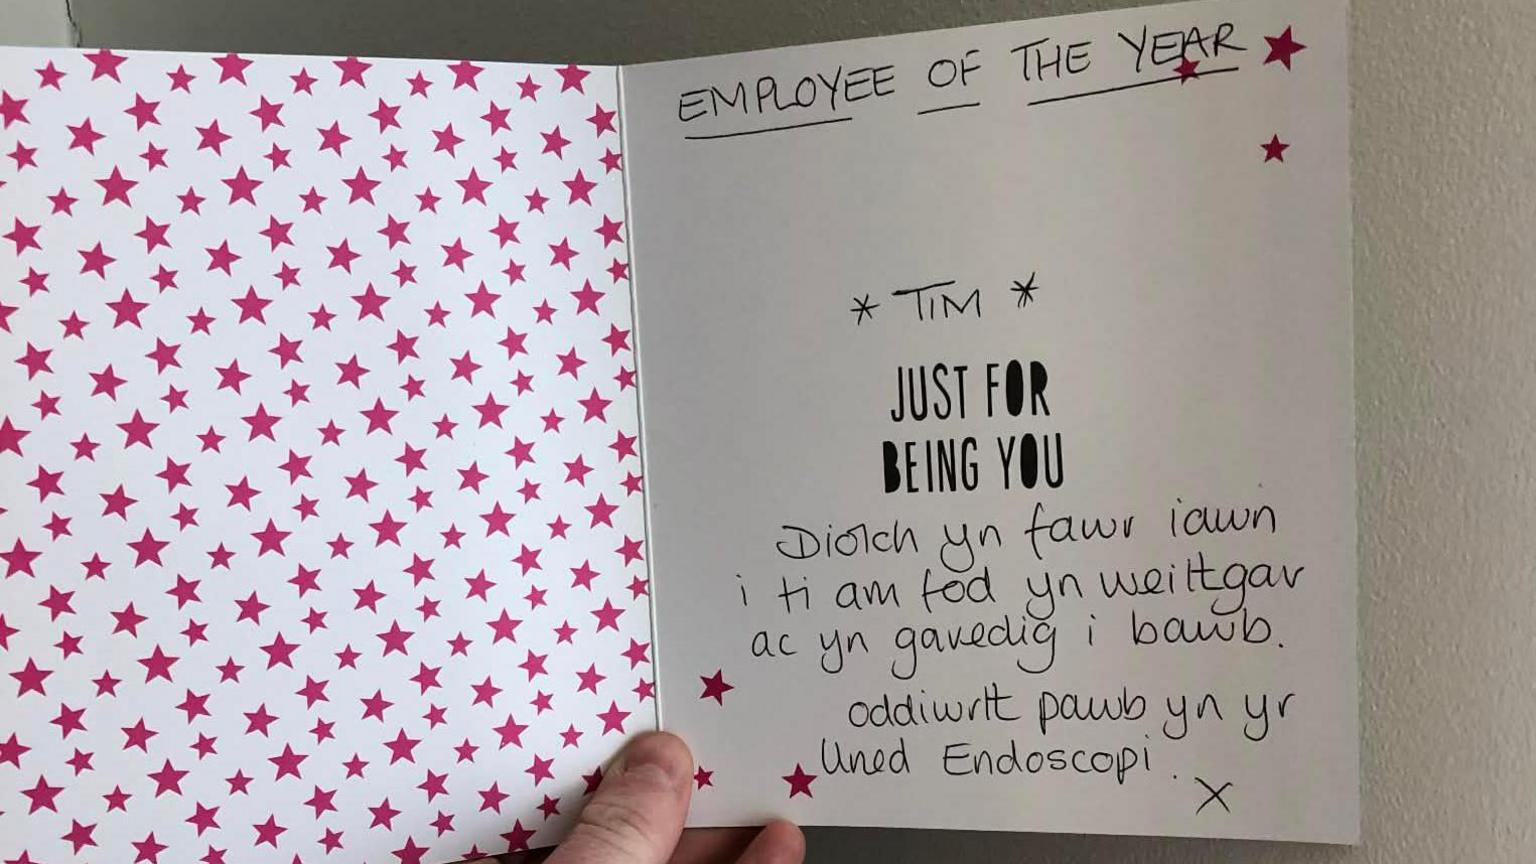 EMPLOYEE OF THE YEAR
* TIM *
JUST FOR
BEING YOU
Diolch yn fawr iawn
i ti am fod yn weithgar
ac yn garedig i bawb.
oddiwrth pawb yn yr
Uned Endoscopi.
X